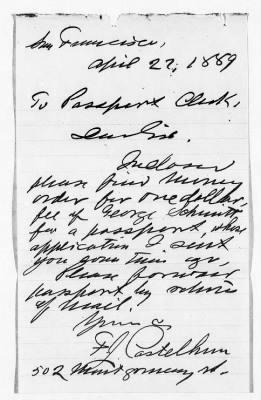 San Francisco,
April 27, 1889
To Passport Clerk,
Dear Sir.
Inclosed
please find money
order for one dollar,
fee of George Schmitt
for a passport, whose
application I sent
you some time ago,
Please forward
passport by return
of mail.
Yours
F. J. Castelhun
502 Montgomery st.